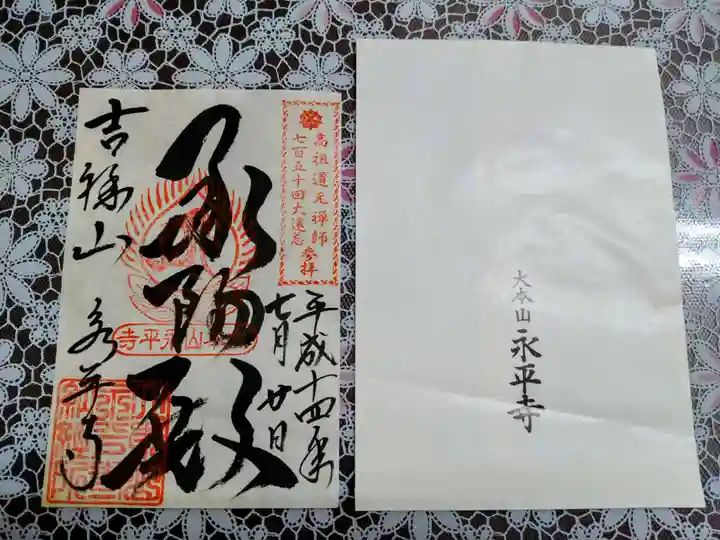 高祖道元禅師
七百五十回大遠忌
参拝
平成十四年
七月廿日
承陽殿
大本山永平寺
吉祥山
永平寺
大本山
永平寺